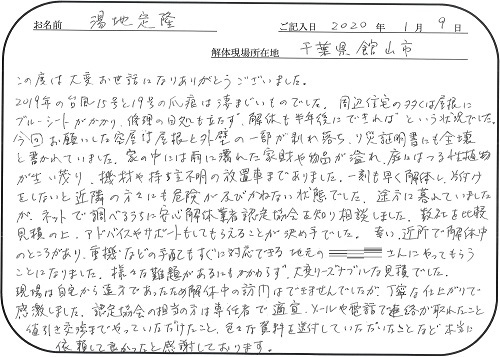 お名前 湯地定隆 ご記入日 2020年 1月 9日
解体現場所在地 千葉県館山市
この度は大変お世話になりありがとうございました。
2019年の台風15号と19号の爪痕は凄まじいものでした。周辺住宅の多くは屋根に
ブルーシートがかかり、修理の目処も立たず、解体も半年後にできればという状況でした。
今回お願いした空屋は屋根と外壁の一部が剥れ落ち、り災証明書にも全壊
と書かれていました。家の中には雨に濡れた家財や物品が溢れ、庭にはつる性植物
が生い茂り、機材や持ち主不明の放置車までありました。一刻も早く解体し、片付け
をしないと近隣の方々にも危険が及びかねない状態でした。途方に暮れていました
が、ネットで調べるうちに安心解体業者認定協会を知り相談しました。数社を比較
見積の上、アドバイスやサポートもしてもらえることが決め手でした。幸い、近所で解体中
のところがあり、重機などの手配もすぐに対応できる地元の さんにやってもらう
ことになりました。様々な難題があるにもかかわらず、大変リーズナブルな見積でした。
現場は自宅から遠方であったため解体中の訪問はできませんでしたが、丁寧な仕上がりで
感激しました。認定協会の担当の方は専任者で適宜、メールや電話で連絡が取れたこと
値引き交渉までやっていただけたこと、色々な資料を送付していただいたことなど本当に
依頼して良かったと感謝しております。